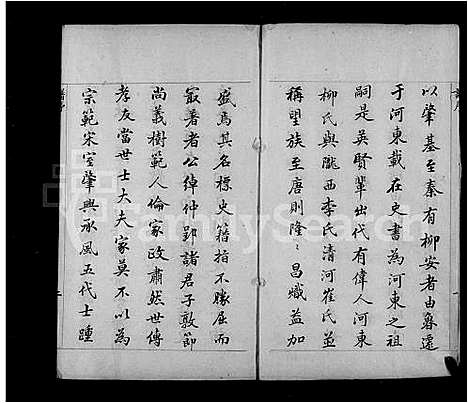 以肇基至秦有柳安者由魯遷
于河東載在史書為河東之祖
嗣是英賢輩出代有偉人河東
柳氏與隴西李氏清河崔氏並
稱望族至唐則隆〻昌熾益加
盛焉其名標史籍指不勝屈而
最著者公綽仲郢諸君子敦節
尚義樹範人倫家政肅然世傳
孝友當世士大夫家莫不以為
宗範宋室肇興承風五代士踵
FamilySearch